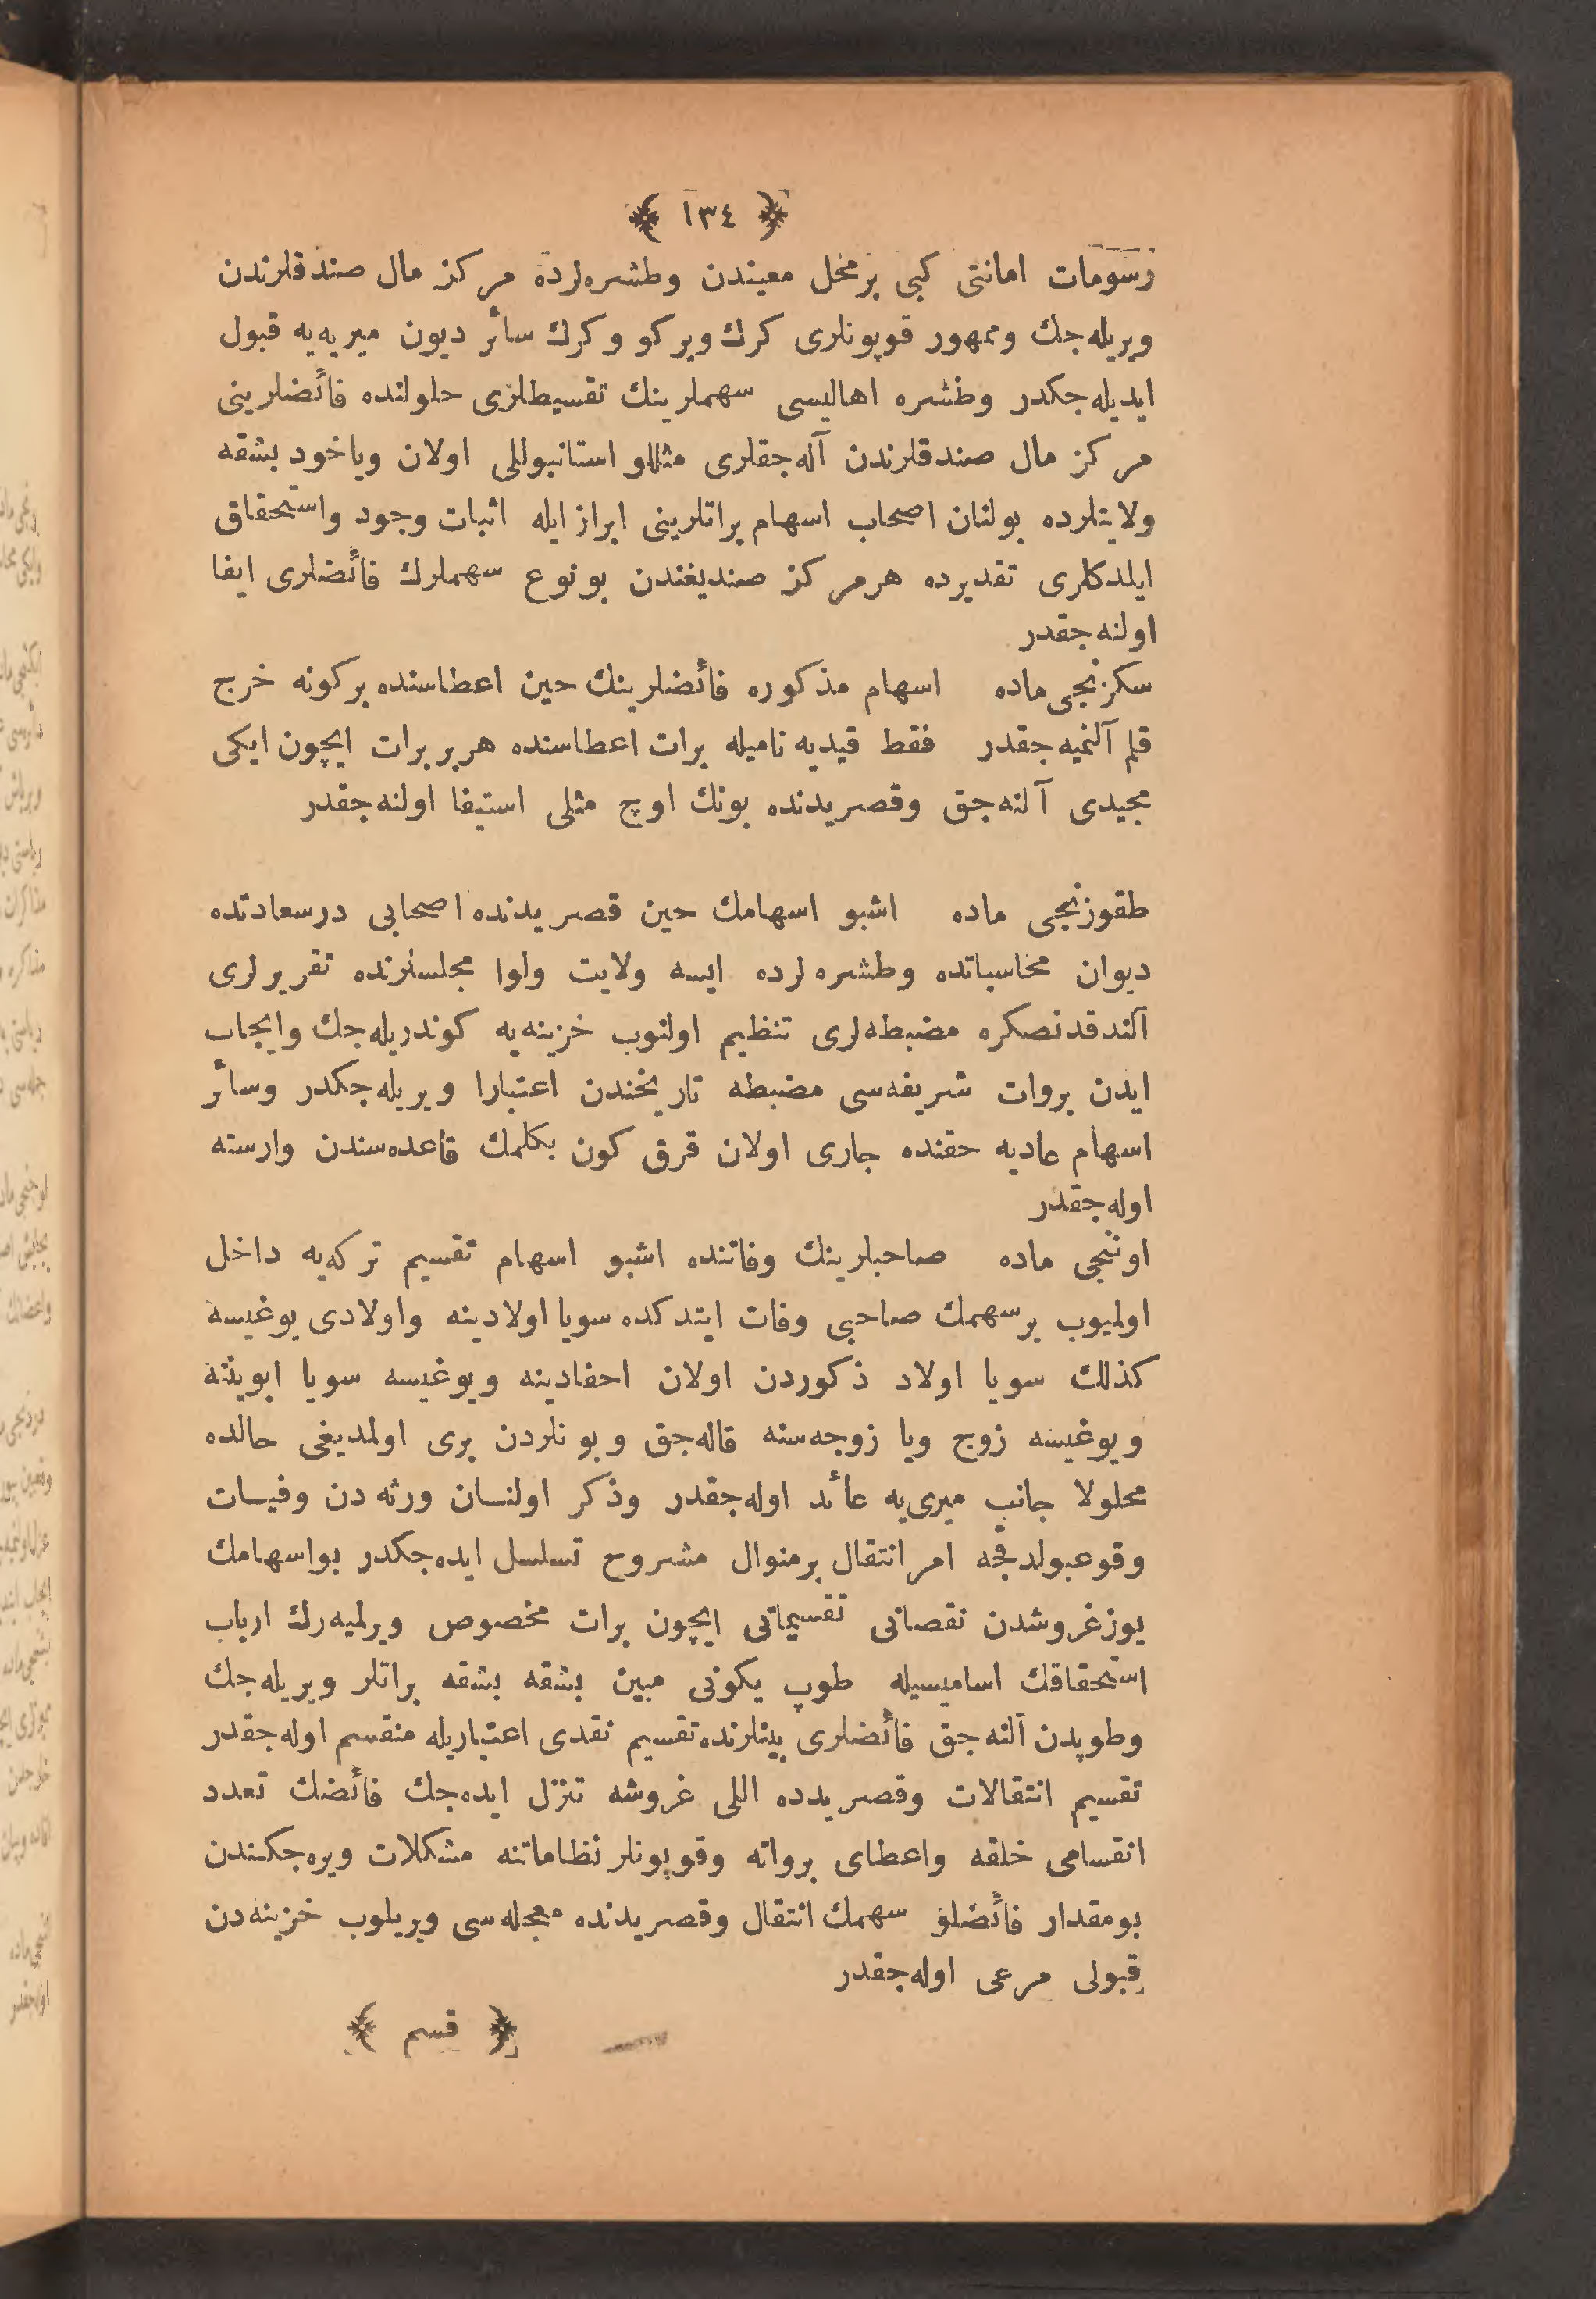 ﴿ ١٣٤ ﴾
رسومات امانتی کبی برمحل معیندن وطشره‌لرده مرکز مال صندقلرندن
ویریله‌جك وممهور قوپونلری کرك ویرکو وکرك سائر دیون میریه‌یه قبول
ایدیله‌جکدر وطشره اهالیسی سهملرینك تقسیطلری حلولنده فائضلرینی
مرکز مال صندقلرندن آله‌جقلری مثللو استانبوللی اولان ویاخود بشقه
ولایتلرده بولنان اصحاب اسهام براتلرینی ابراز ایله اثبات وجود واستحقاق
ایلدکلری تقدیرده هرمرکز صندیغندن بونوع سهملرك فائضلری ایفا
اولنه‌جقدر
سکزنجی ماده اسهام مذکوره فائضلرینك حین اعطاسنده برکونه خرج
قلم آلنمیه‌جقدر فقط قیدیه نامیله برات اعطاسنده هربر برات ایچون ایکی
مجیدی آلنه‌جق وقصریدنده بونك اوچ مثلی استیفا اولنه‌جقدر
طقوزنجی ماده اشبو اسهامك حین قصریدنده اصحابی درسعادتده
دیوان محاسباتده وطشره‌لرده ایسه ولایت ولوا مجلسلرنده تقریرلری
آلندقدنصکره مضبطه‌لری تنظیم اولنوب خزینه‌یه کوندریله‌جك وایجاب
ایدن بروات شریفه‌سی مضبطه تاریخندن اعتبارا ویریله‌جکدر وسائر
اسهام عادیه حقنده جاری اولان قرق کون بکلمك قاعده‌سندن وارسته
اوله‌جقدر
اوننجی ماده صاحبلرینك وفاتنده اشبو اسهام تقسیم ترکه‌یه داخل
اولمیوب برسهمك صاحبی وفات ایتدکده سویا اولادینه واولادی یوغیسه
کذلك سویا اولاد ذکوردن اولان احفادینه ویوغیسه سویا ابویننه
ویوغیسه زوج ویا زوجه‌سنه قاله‌جق وبونلردن بری اولمدیغی حالده
محلولا جانب میری‌یه عائد اوله‌جقدر وذکر اولنسان ورثه‌دن وفیسات
وقوعبولدقجه امر انتقال برمنوال مشروح تسلسل ایده‌جکدر بواسهامك
یوزغروشدن نقصانی تقسیماتی ایچون برات مخصوص ویرلمیه‌رك ارباب
استحقاقك اسامیسیله طوپ یکونی مبین بشقه بشقه براتلر ویریله‌جك
وطوپدن آلنه‌جق فائضلری بینلرنده تقسیم نقدی اعتباریله منقسم اوله‌جقدر
تقسیم انتقالات وقصریدده اللی غروشه تنزل ایده‌جك فائضك تعدد
انقسامی خلقه واعطای برواته وقوپونلر نظاماتنه مشکلات ویره‌جکندن
بومقدار فائضلو سهمك انتقال وقصریدنده معجله‌سی ویریلوب خزینه‌دن
قبولی مرعی اوله‌جقدر
﴿ قسم ﴾